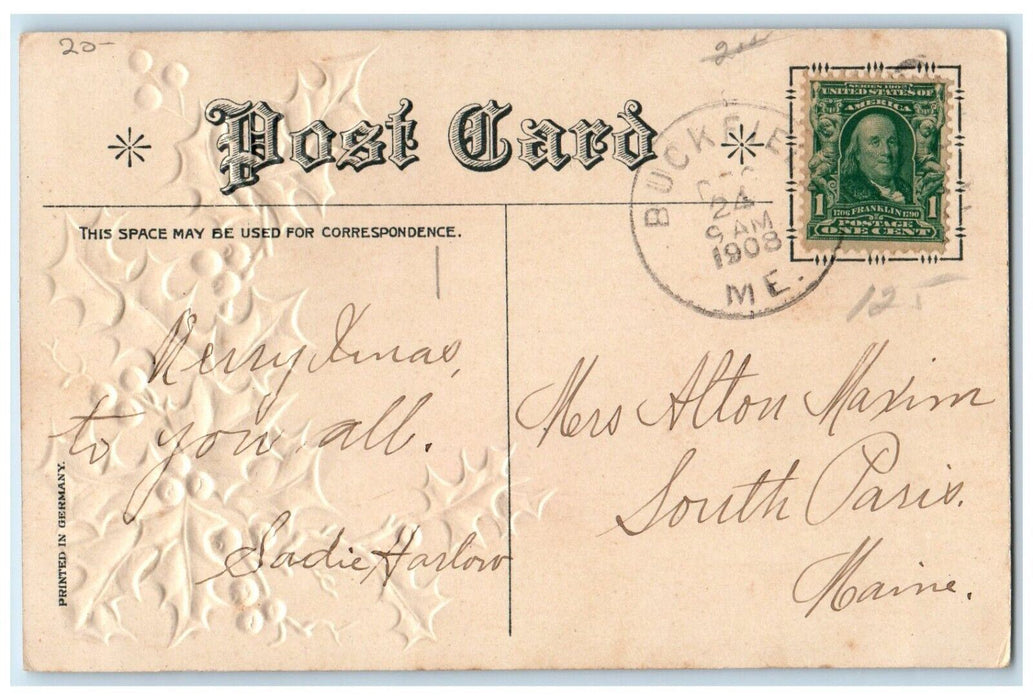 20-
Post Card
THIS SPACE MAY BE USED FOR CORRESPONDENCE.
BUCKFIE
24
9 AM
1908
ME.
SERIES 1902
UNITED STATES OF
AMERICA
1706 FRANKLIN 1790
1 POSTAGE 1
ONE CENT
12.-
Merry Xmas,
to you all.
Sadie Harlow
Mrs Alton Maxim
South Paris.
Maine.
PRINTED IN GERMANY.